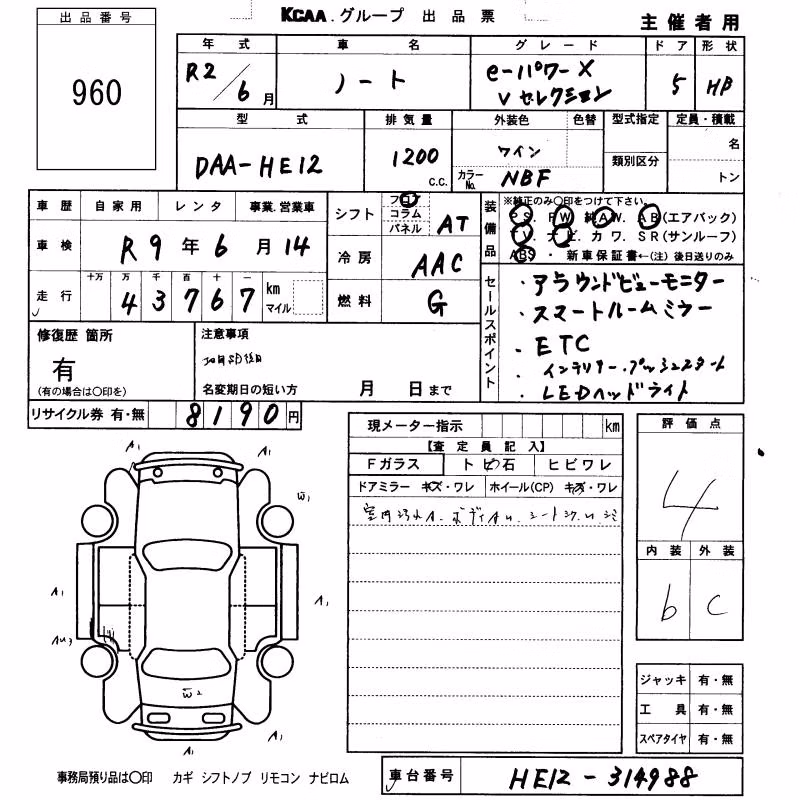 出品番号
960
KCAA.グループ 出品票
主催者用
年式 車名 グレード ドア 形状
R2/6月 ノート e-パワー X Vセレクション 5 HB
型式 排気量 外装色 色替 型式指定 定員・積載
DAA-HE12 1200 c.c. ワイン 類別区分 名
カラーNo. NBF トン
車歴 自家用 レンタ 事業.営業車
車検 R9年6月14
走行 十万 万 千 百 十 一
43767 km マイル
シフト フロア コラム パネル AT
冷房 AAC
燃料 G
装備品 ※純正のみ〇印をつけて下さい。
PS. PW. 純AW. AB(エアバック)
TV. ナビ. カワ. SR(サンルーフ)
ABS・新車保証書←(注)後日送りのみ
セールスポイント
・アラウンドビューモニター
・スマートルームミラー
・ETC
・インテリキー・プッシュスタート
・LEDヘッドライト
修復歴 箇所
有
(有の場合は〇印を)
注意事項
名変期日の短い方 月 日まで
リサイクル券 有・無 8190円
現メーター指示 km
【査定員記入】
Fガラス トビ石 ヒビワレ
ドアミラー キズ・ワレ ホイール(CP) キズ・ワレ
評価点
4
内装 外装
b C
A1 A1
W1
A1 A1
AU3
W2
A1 A1
ジャッキ 有・無
工具 有・無
スペアタイヤ 有・無
事務局預り品は〇印 カギ シフトノブ リモコン ナビロム
車台番号 HE12-314988